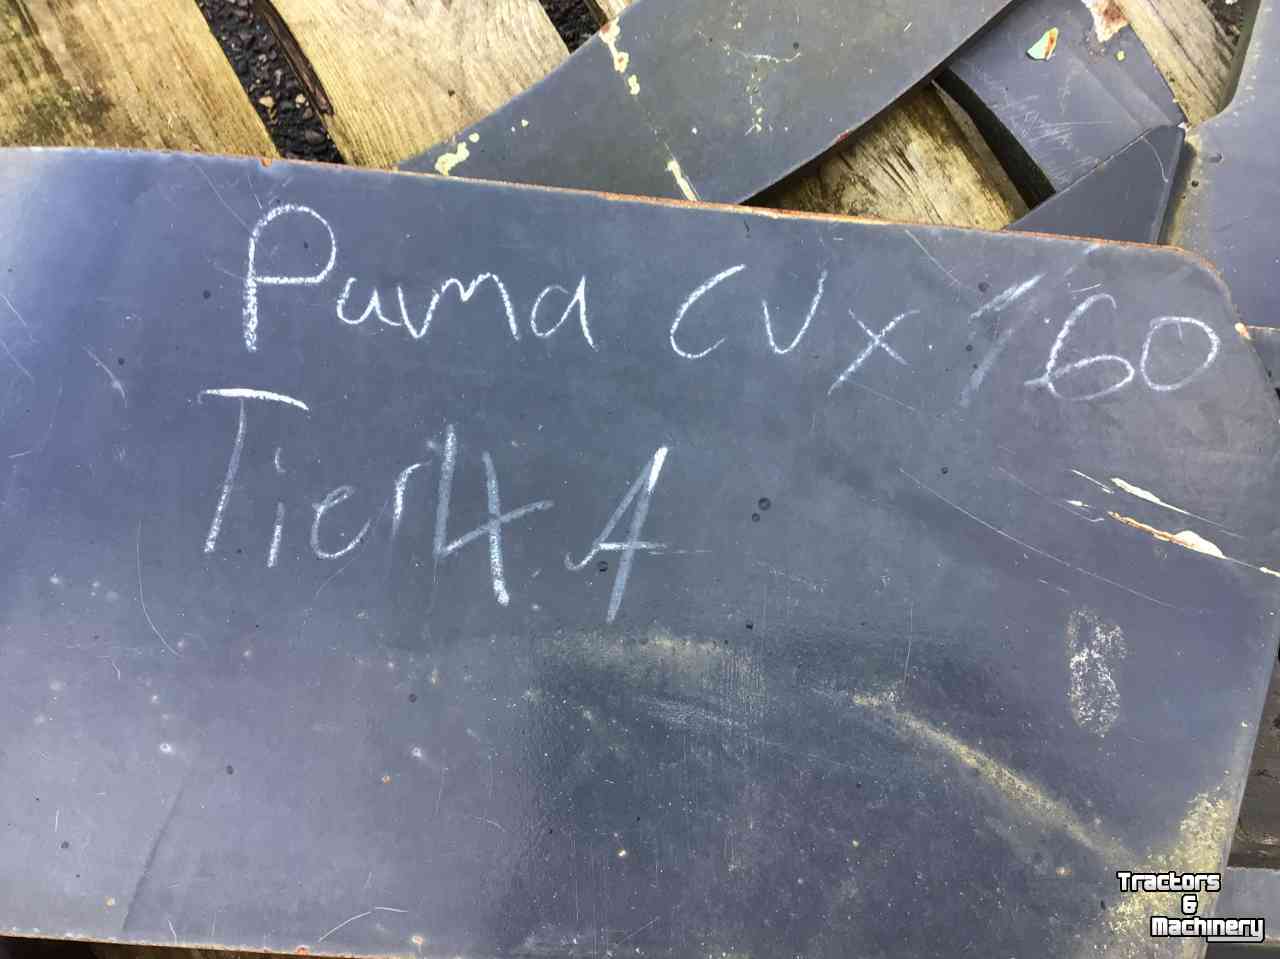 Puma CVX 160
Tier 4 A
Tractors
&
Machinery